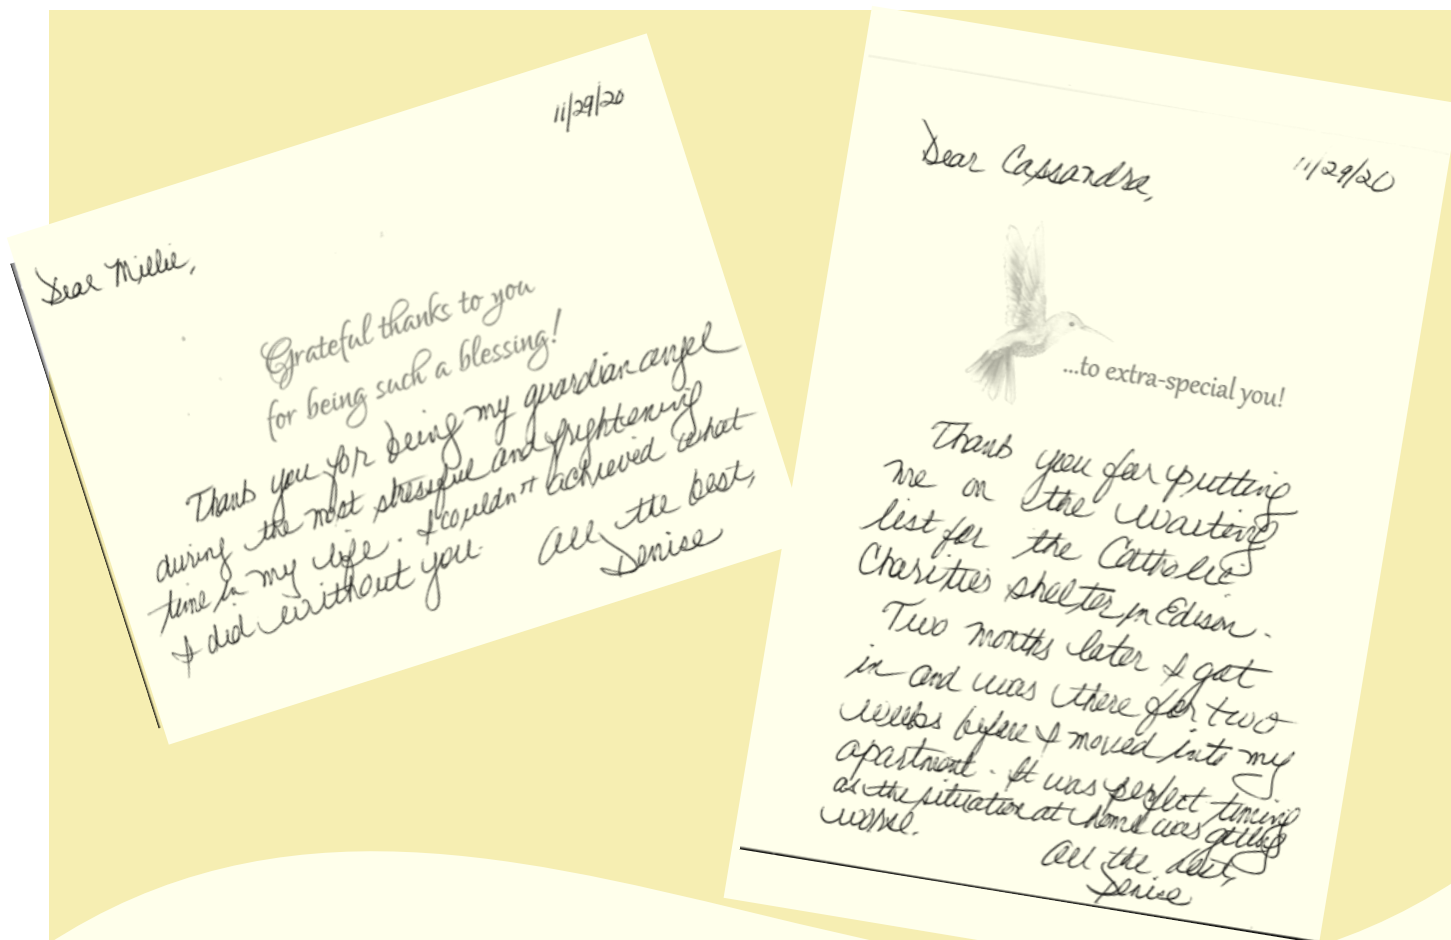 11/29/20
Dear Millie,
Grateful thanks to you
for being such a blessing!
Thank you for being my guardian angel
during the most stressful and frightening
time in my life. I couldn't achieved what
I did without you.
All the best,
Denise
Dear Cassandra,
11/29/20
...to extra-special you!
Thank you for putting
me on the waiting
list for the Catholic
Charities shelter in Edison.
Two months later I got
in and was there for two
weeks before I moved into my
apartment. It was perfect timing
as the situation at home was getting
worse.
All the best,
Denise